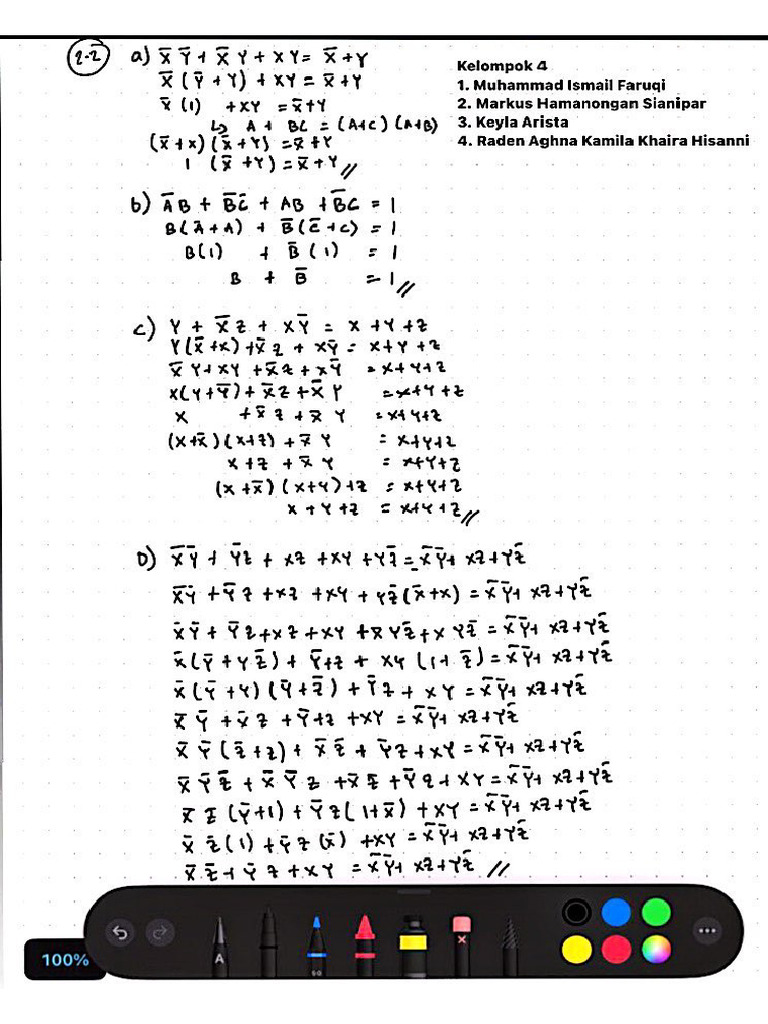 2-2
a) X̅ Y̅ + X̅ Y + XY = X̅ + Y
X̅ (Y̅ + Y) + XY = X̅ + Y
X̅ (1) + XY = X̅ + Y
↳ A + BC = (A+C) (A+B)
(X̅ + X) (X̅ + Y) = X̅ + Y
1 (X̅ + Y) = X̅ + Y //
Kelompok 4
1. Muhammad Ismail Faruqi
2. Markus Hamanongan Sianipar
3. Keyla Arista
4. Raden Aghna Kamila Khaira Hisanni
b) A̅B + B̅C̅ + AB + B̅C = 1
B(A̅ + A) + B̅(C̅ + C) = 1
B(1) + B̅ (1) = 1
B + B̅ = 1 //
c) Y + X̅Z + XY̅ = X + Y + Z
Y(X̅ + X) + X̅Z + XY̅ = X + Y + Z
X̅Y + XY + X̅Z + XY̅ = X + Y + Z
X(Y + Y̅) + X̅Z + X̅Y = X + Y + Z
X + X̅Z + X̅Y = X + Y + Z
(X + X̅)(X + Z) + X̅Y = X + Y + Z
X + Z + X̅Y = X + Y + Z
(X + X̅)(X + Y) + Z = X + Y + Z
X + Y + Z = X + Y + Z //
D) X̅Y̅ + Y̅Z + XZ + XY + YZ̅ = X̅Y̅ + XZ + YZ̅
X̅Y̅ + Y̅Z + XZ + XY + YZ̅(X̅ + X) = X̅Y̅ + XZ + YZ̅
X̅Y̅ + Y̅Z + XZ + XY + X̅YZ̅ + XYZ̅ = X̅Y̅ + XZ + YZ̅
X̅(Y̅ + YZ̅) + Y̅+Z + XY (1 + Z̅) = X̅Y̅ + XZ + YZ̅
X̅(Y̅ + Y)(Y̅ + Z̅) + Y̅Z + XY = X̅Y̅ + XZ + YZ̅
X̅ Y̅ + X̅ Z + Y̅+Z + XY = X̅Y̅ + XZ + YZ̅
X̅ Y̅(Z̅ + Z) + X̅ Z̅ + Y̅Z + XY = X̅Y̅ + XZ + YZ̅
X̅ Y̅ Z̅ + X̅ Y̅ Z + X̅ Z̅ + Y̅Z + XY = X̅Y̅ + XZ + YZ̅
X̅ Z̅ (Y̅ + 1) + Y̅Z(1 + X̅) + XY = X̅Y̅ + XZ + YZ̅
X̅ Z̅ (1) + Y̅Z (X̅) + XY = X̅Y̅ + XZ + YZ̅
X̅ Z̅ + Y̅ Z + XY = X̅Y̅ + XZ + YZ̅ //
100%
A